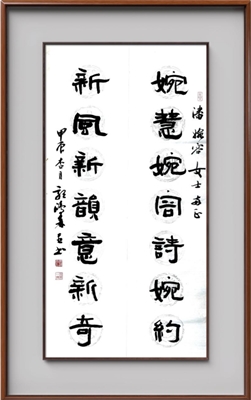 潘婉容女士正
婉慧婉容詩婉約
新風新韻意新奇
甲辰杏月